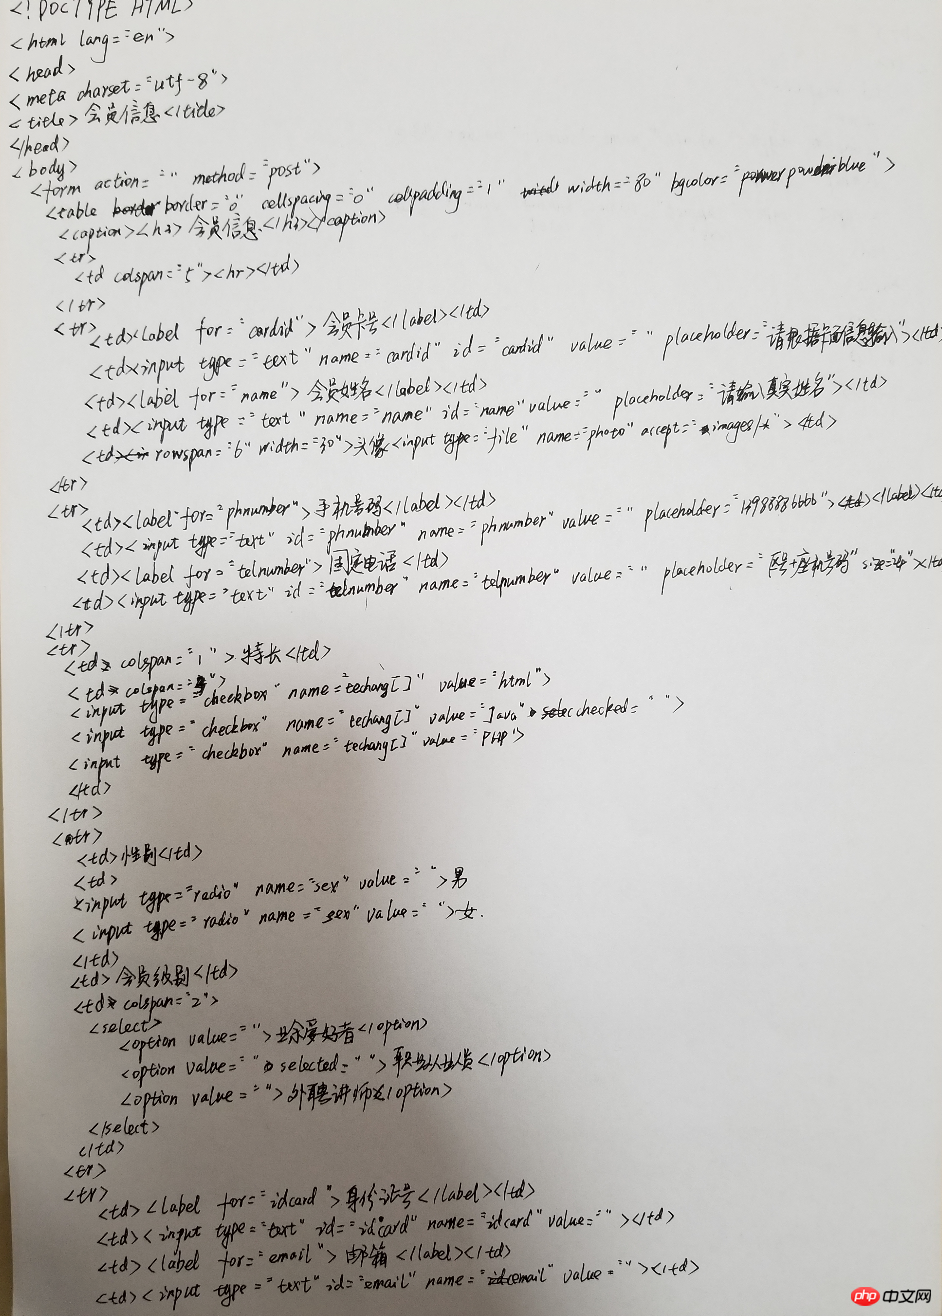 <!DOCTYPE HTML>
<html lang="en">
<head>
<meta charset="utf-8">
<title>会员信息</title>
</head>
<body>
<form action="" method="post">
<table border="0" cellspacing="0" cellpadding="1" width="80" bgcolor="powderblue">
<caption><h3>会员信息</h3></caption>
<tr>
<td colspan="5"><hr></td>
</tr>
<tr>
<td><label for="cardid">会员卡号</label></td>
<td><input type="text" name="cardid" id="cardid" value="" placeholder="请根据卡面信息输入"></td>
<td><label for="name">会员姓名</label></td>
<td><input type="text" name="name" id="name" value="" placeholder="请输入真实姓名"></td>
<td rowspan="6" width="30">头像<input type="file" name="photo" accept="images/*"><td>
</tr>
<tr>
<td><label for="phnumber">手机号码</label></td>
<td><input type="text" id="phnumber" name="phnumber" value="" placeholder="></label></td
<td><label for="telnumber">固定电话</td>
<td><input type="text" id="telnumber" name="telnumber" value="" placeholder="区号+座机号码" size=></td
</tr>
<tr>
<td colspan="1">特长</td>
<td colspan=">
<input type="checkbox" name="techang[]" value="html">
<input type="checkbox" name="techang[]" value="Java" checked="">
<input type="checkbox" name="techang[]" value="PHP">
</td>
</tr>
<tr>
<td>性别</td>
<td>
<input type="radio" name="sex" value="">男
<input type="radio" name="sex" value="">女.
</td>
<td>会员级别</td>
<td colspan="2">
<select>
<option value="">业余爱好者</option>
<option value="" selected="">职业从业人员</option>
<option value="">外聘讲师</option>
</select>
</td>
<tr>
<tr>
<td><label for="idcard">身份证号</label></td>
<td><input type="text" id="idcard" name="idcard" value=""></td>
<td><label for="email">邮箱</label></td>
<td><input type="text" id="email" name="email" value=""></td>
php 中文网